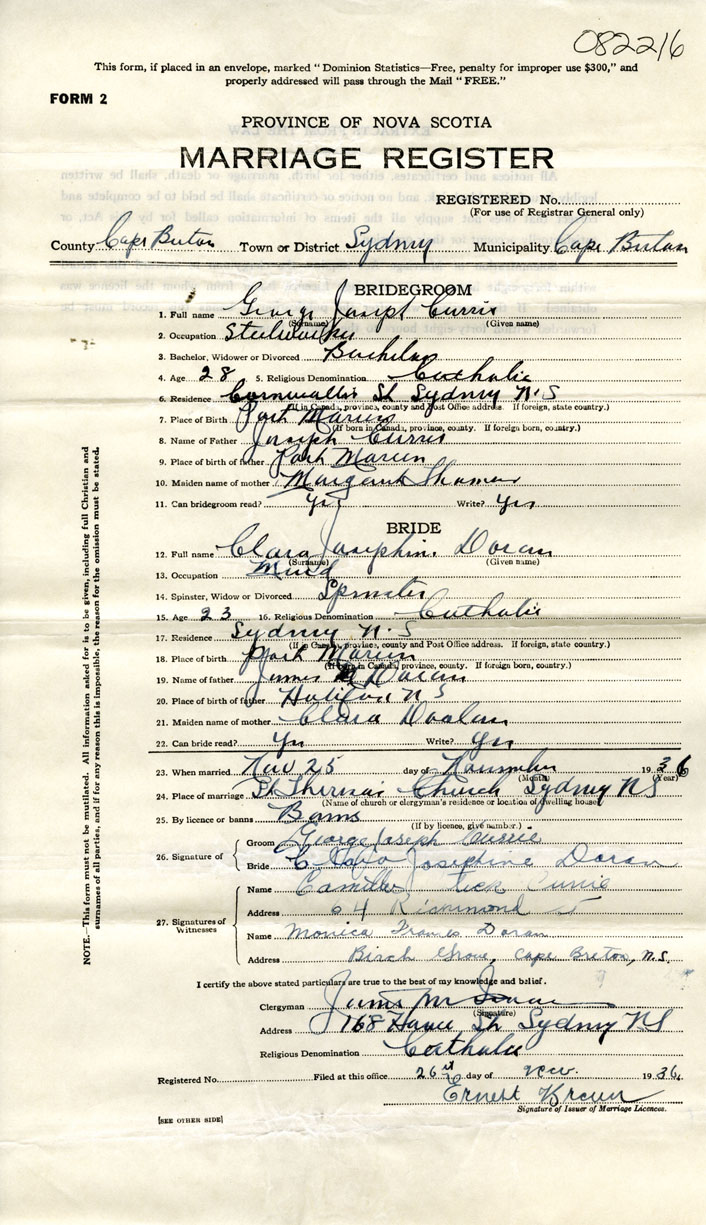 082216
This form, if placed in an envelope, marked "Dominion Statistics—Free, penalty for improper use $300," and
properly addressed will pass through the Mail "FREE."
FORM 2
PROVINCE OF NOVA SCOTIA
MARRIAGE REGISTER
REGISTERED No.
(For use of Registrar General only)
County Cape Breton Town or District Sydney Municipality Cape Breton
BRIDEGROOM
1. Full name George Joseph Currie
(Surname) (Given name)
2. Occupation Steelworker
3. Bachelor, Widower or Divorced Bachelor
4. Age 28 5. Religious Denomination Catholic
6. Residence Cornwallis St Sydney N.S
(If in Canada, province, county and Post Office address. If foreign, state country.)
7. Place of Birth Port Morien
(If born in Canada, province, county. If foreign born, country.)
8. Name of Father Joseph Currie
9. Place of birth of father Port Morien
10. Maiden name of mother Margaret
11. Can bridegroom read? Yes Write? Yes
BRIDE
12. Full name Clara Josephine Doran
(Surname) (Given name)
13. Occupation Maid
14. Spinster, Widow or Divorced Spinster
15. Age 23 16. Religious Denomination Catholic
17. Residence Sydney N.S
(If in Canada, province, county and Post Office address. If foreign, state country.)
18. Place of birth Port Morien
(If born in Canada, province, county. If foreign born, country.)
19. Name of father James Doran
20. Place of birth of father Halifax N S
21. Maiden name of mother Clara
22. Can bride read? Yes Write? Yes
23. When married Nov 25 day of November 1936
(Month) (Year)
24. Place of marriage St Theresa's Church Sydney NS
(Name of church or clergyman's residence or location of dwelling house)
25. By licence or banns Banns
(If by licence, give number.)
26. Signature of
Groom George Joseph Currie
Bride Clara Josephine Doran
27. Signatures of Witnesses
Name Currie
Address 64 Richmond St
Name Monica Frances Doran
Address Birch Grove, Cape Breton, N.S.
I certify the above stated particulars are true to the best of my knowledge and belief.
Clergyman James
(Signature)
Address 168 St Sydney NS
Religious Denomination Catholic
Registered No. Filed at this office 26th day of Nov. 1936.
Ernest
Signature of Issuer of Marriage Licences.
[SEE OTHER SIDE]
NOTE.—This form must not be mutilated. All information asked for is to be given, including full Christian and
surnames of all parties, and if for any reason this is impossible, the reason for the omission must be stated.